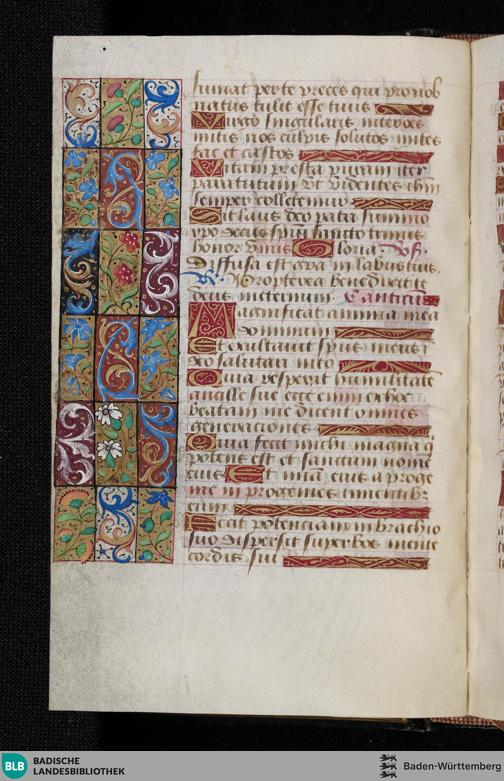 Sumat per te preces qui pro nob
natus tulit esse tuus
Virgo singularis inter oēs
mitis nos culpis solutos mites
fac et castos
Vitam presta puram iter
para tutum ut videntes ihm
semper colletemur
Sit laus deo patri summo
xpo decus spiri sancto trinus
honor unus Gloria Vers.
Diffusa est gra in labiis tuis
Propterea benedixit te
deus in eternum Canticū
Magnificat anima mea
dominum
Et exultavit spūs meus ī
deo salutari meo
Quia respexit humilitatē
ancille sue ecce enim ex hoc
beatam me dicent omnes
generaciones
Quia fecit michi magna q̄
potens est et sanctum nomē
eius Et mīa eius a proge
nie in progenies timētibz
eum
Fecit potenciam in brachio
suo dispersit superbos mente
cordis sui
BLB BADISCHE
LANDESBIBLIOTHEK
Baden-Württemberg